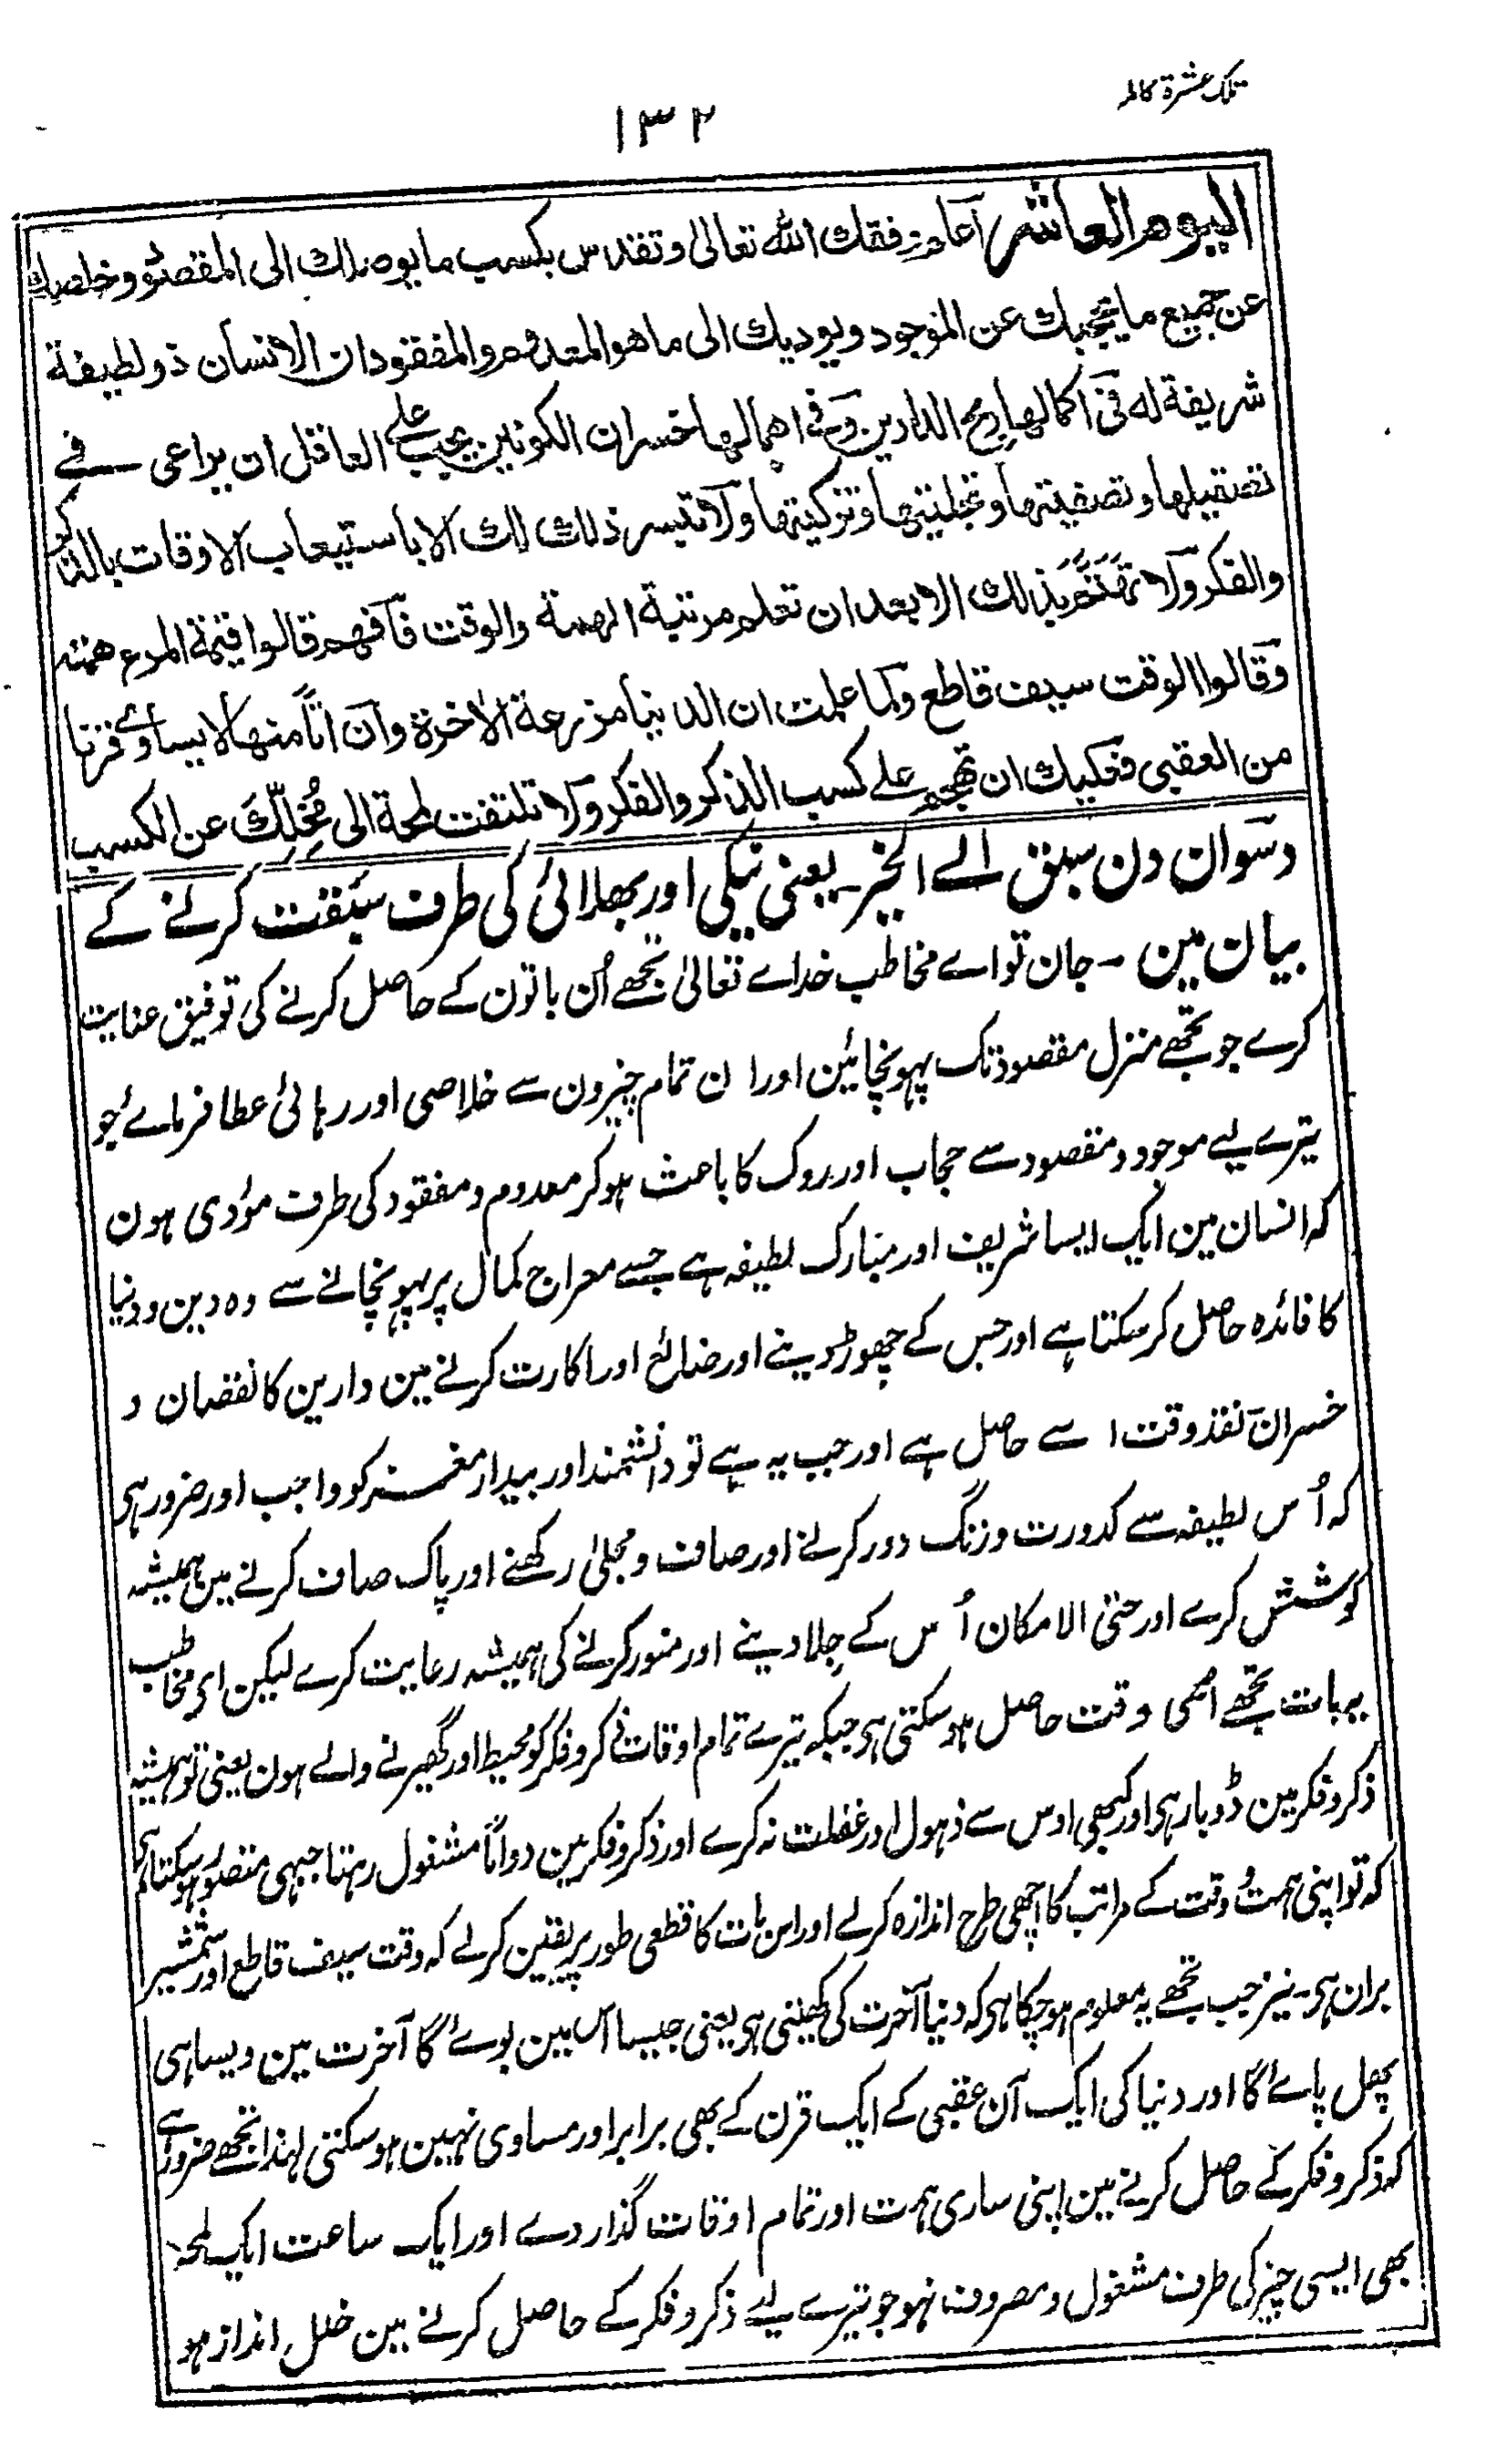 تلک عشرة کاملہ
۱۳۲
الیوم العاشر اعلم وفقك الله تعالی وتقدس بکسب ما یوصلك الی المقصود وخلصك
عن جمیع ما یحجبك عن الموجود ویودیك الی ما هو المعدوم والمفقود ان الانسان ذو لطیفة
شریفة له فی اکمالها ربح الدارین وفی اهمالها خسران الکونین یجب علی العاقل ان یراعی فے
تصقیلها وتصفیتها وتجلیتها وتزکیتها ولا تیسر ذلك لك الا باستیعاب الاوقات بالذکر
والفکر ولا بذلك الا بعد ان تعلم مرتبة الهمة والوقت فافهم قالوا قیمة المرء همته
وقالوا الوقت سیف قاطع وکما علمت ان الدنیا مزرعة الاٰخرة وان اٰنا منها لا یساوے قرنا
من العقبی فعلیك ان تهجم علے کسب الذکر والفکر ولا تلتفت لمحة الی مخلّك عن الکسب
دسوان دن سبق الے الخیر۔ یعنی نیکی اور بھلائی کی طرف سبقت کرنے کے
بیان مین ۔ جان تو اے مخاطب خداے تعالیٰ تجھے اُن باتون کے حاصل کرنے کی توفیق عنایت
کرے جو تجھے منزل مقصود تک پہونچائین اور ان تمام چیزون سے خلاصی اور رہائی عطا فرمائے جو
تیرے لیے موجود و مقصود سے حجاب اور روک کا باعث ہوکر معدوم و مفقود کی طرف مؤدی ہون
کہ انسان مین ایک ایسا شریف اور مبارک لطیفہ ہے جسے معراج کمال پر پہونچانے سے وہ دین و دنیا
کا فائدہ حاصل کرسکتا ہے اور جس کے چھوڑدینے اور ضائع اور اکارت کرنے مین دارین کا نقصان و
خسران نقد وقت اسے حاصل ہے اور جب یہ ہے تو دانشمند اور بیدار مغز کو واجب اور ضرور ہی
کہ اُس لطیفہ سے کدورت و زنگ دور کرنے اور صاف و مجلیٰ رکھنے اور پاک صاف کرنے مین ہمیشہ
کوشش کرے اور حتی الامکان اُس کے جِلا دینے اور منور کرنے کی ہمیشہ رعایت کرے لیکن ای مخاطب
یہ بات تجھے اسی وقت حاصل ہوسکتی ہی جبکہ تیرے تمام اوقات ذکر و فکر کو محیط اور گھیرنے والے ہون یعنی تو ہمیشہ
ذکر و فکر مین ڈوبا رہی اور کبھی اوس سے ذہول اور غفلت نہ کرے اور ذکر و فکر مین دواماً مشغول رہنا جبہی متصور ہوسکتا ہی
کہ تو اپنی ہمت و وقت کے مراتب کا اچھی طرح اندازہ کرلے اور اس بات کا قطعی طور پر یقین کرلے کہ وقت سیف قاطع اور شمشیر
بران ہی۔ نیز جب تجھے یہ معلوم ہوچکا ہی کہ دنیا آخرت کی کھیتی ہی یعنی جیسا اس مین بوئے گا آخرت مین ویسا ہی
پھل پائے گا اور دنیا کی ایک آن عقبی کے ایک قرن کے بھی برابر اور مساوی نہین ہوسکتی لہذا تجھے ضرور ہے
کہ ذکر و فکر کے حاصل کرنے مین اپنی ساری ہمت اور تمام اوقات گذار دے اور ایک ساعت ایک لمحہ
بھی ایسی چیز کی طرف مشغول و مصروف نہو جو تیرے لیے ذکر و فکر کے حاصل کرنے مین خلل انداز ہو